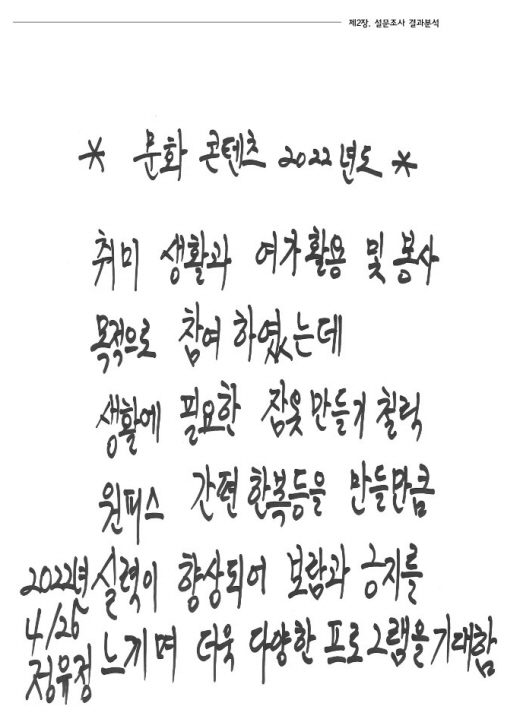 제2장. 설문조사 결과분석
* 문화 콘텐츠 2022년도 *
취미 생활과 여가활용 및 봉사
목적으로 참여 하였는데
생활에 필요한 잠옷 만들기 칠럭
원피스 간편 한복등을 만들만큼
실력이 향상되어 보람과 긍지를
느끼며 더욱 다양한 프로그램을 기대함
2022년
4/26
정유정